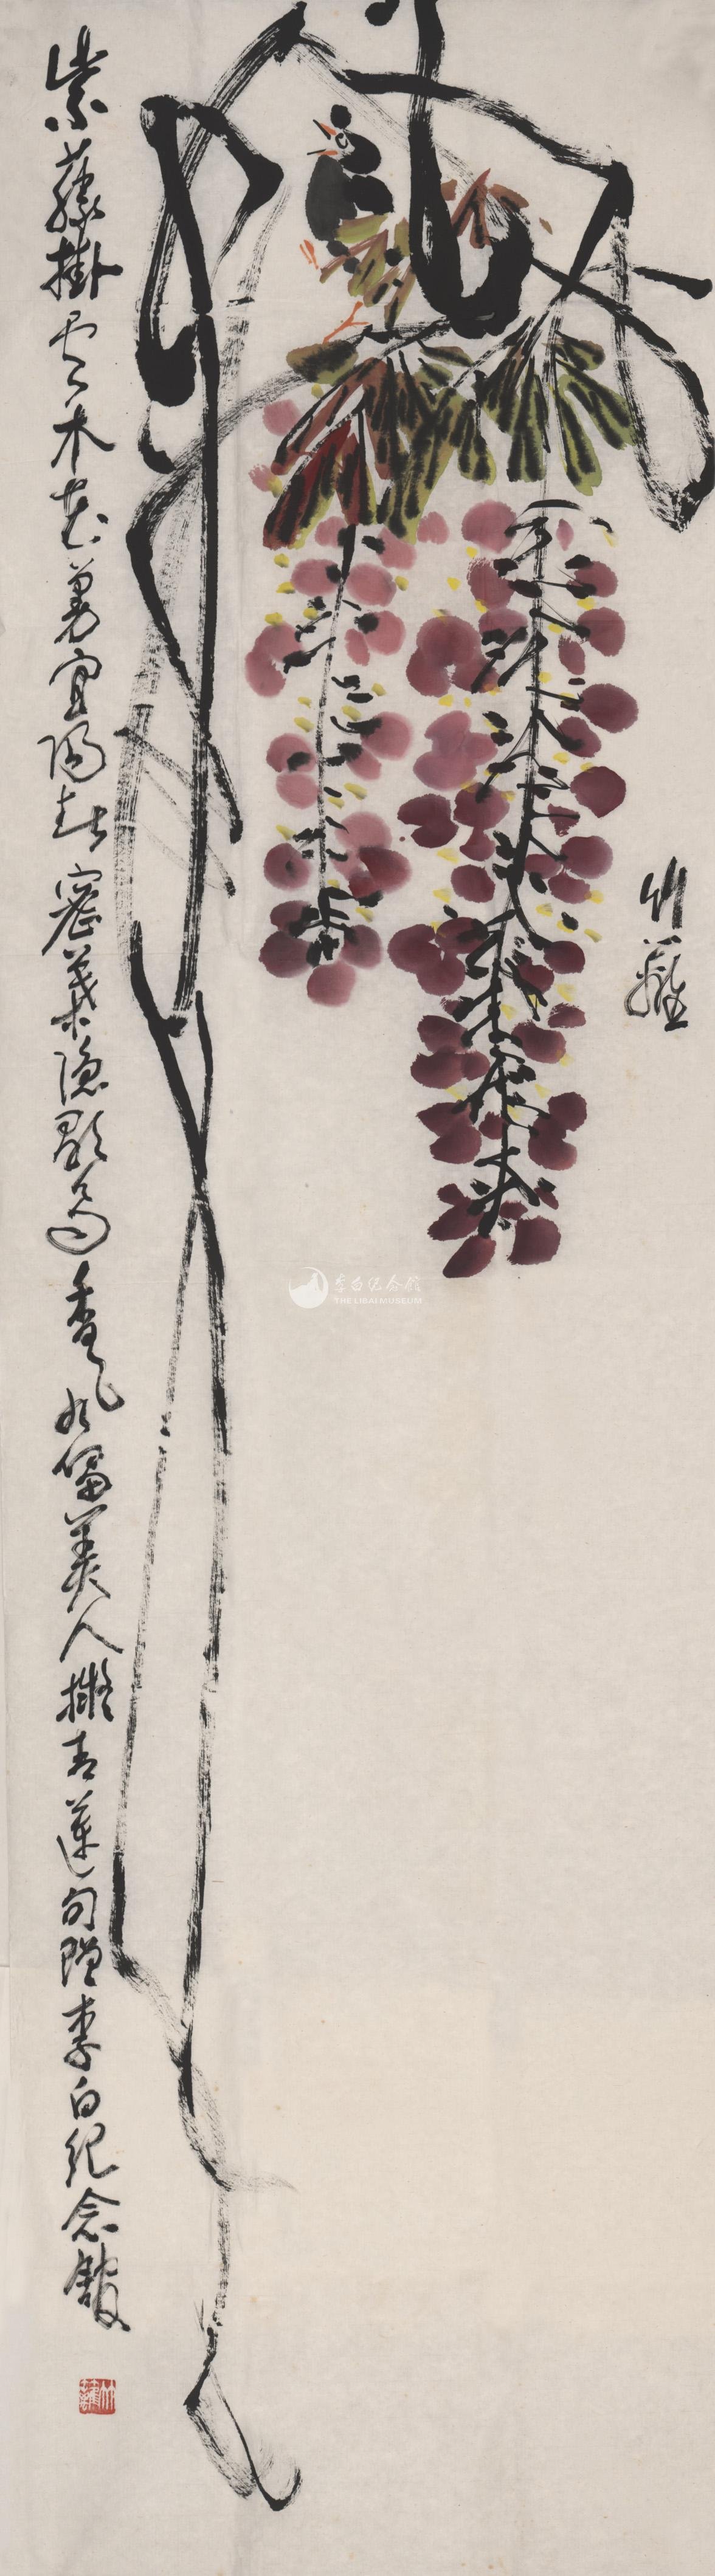 竹
紫藤掛雲木花蔓宜陽春密葉隱歌鳥香風留美人擬青蓮句贈李白紀念館
李白纪念馆
THE LIBAI MUSEUM